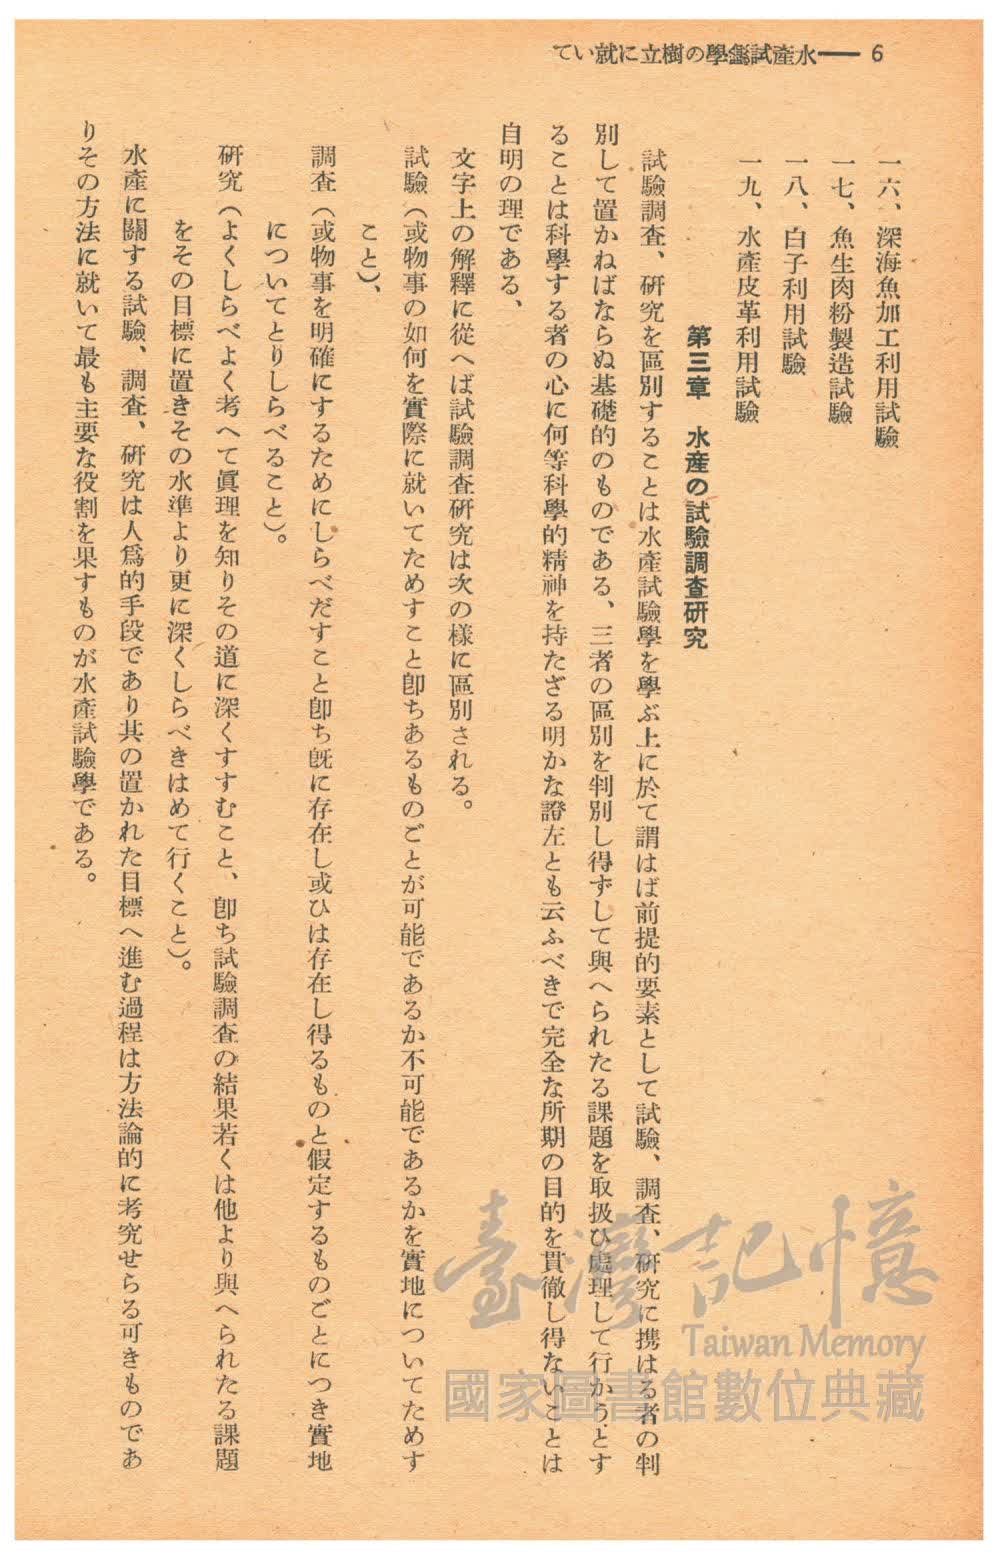 てい就に立樹の學驗試產水 ── 6
一六、深海魚加工利用試驗
一七、魚生肉粉製造試驗
一八、白子利用試驗
一九、水產皮革利用試驗
第三章　水産の試驗調査研究
試驗調査、硏究を區別することは水產試驗學を學ぶ上に於て謂はば前提的要素として試驗、調査、硏究に携はる者の判
別して置かねばならぬ基礎的のものである、三者の區別を判別し得ずして與へられたる課題を取扱ひ處理して行かうとす
ることは科學する者の心に何等科學的精神を持たざる明かな證左とも云ふべきで完全な所期の目的を貫徹し得ないことは
自明の理である、
文字上の解釋に從へば試驗調査硏究は次の樣に區別される。
試驗（或物事の如何を實際に就いてためすこと卽ちあるものごとが可能であるか不可能であるかを實地についてためす
こと）、
調査（或物事を明確にするためにしらべだすこと卽ち旣に存在し或ひは存在し得るものと假定するものごとにつき實地
についてとりしらべること）。
硏究（よくしらべよく考へて眞理を知りその道に深くすすむこと、卽ち試驗調査の結果若くは他より與へられたる課題
をその目標に置きその水準より更に深くしらべきはめて行くこと）。
水產に關する試驗、調査、硏究は人爲的手段であり其の置かれた目標へ進む過程は方法論的に考究せらる可きものであ
りその方法に就いて最も主要な役割を果すものが水產試驗學である。
臺灣記憶
Taiwan Memory
國家圖書館數位典藏